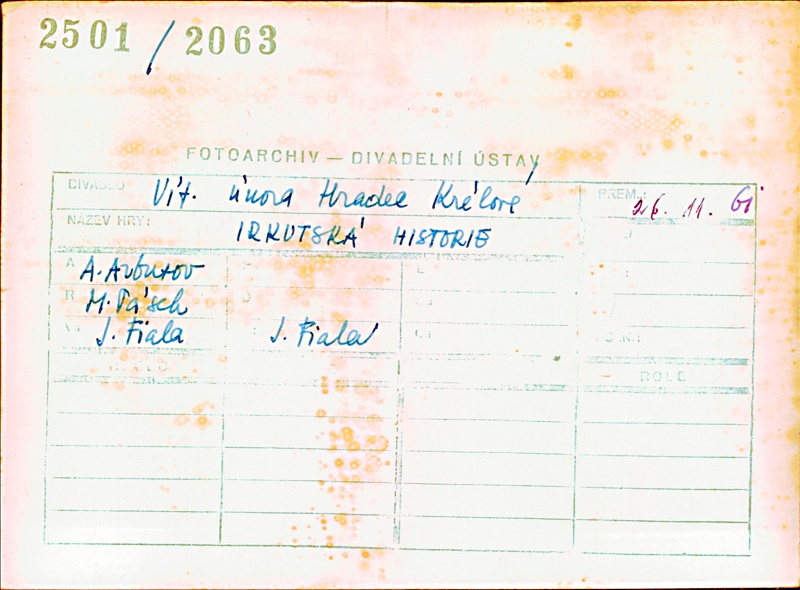 2501 / 2063
FOTOARCHIV — DIVADELNÍ ÚSTAV
DIVADLO Vít. února Hradec Králové PREM.: 26. 11. 61
NÁZEV HRY: IRKUTSKÁ HISTORIE
A A. Arbuzov
R M. Pásch
J. Fiala J. Fiala
ROLE